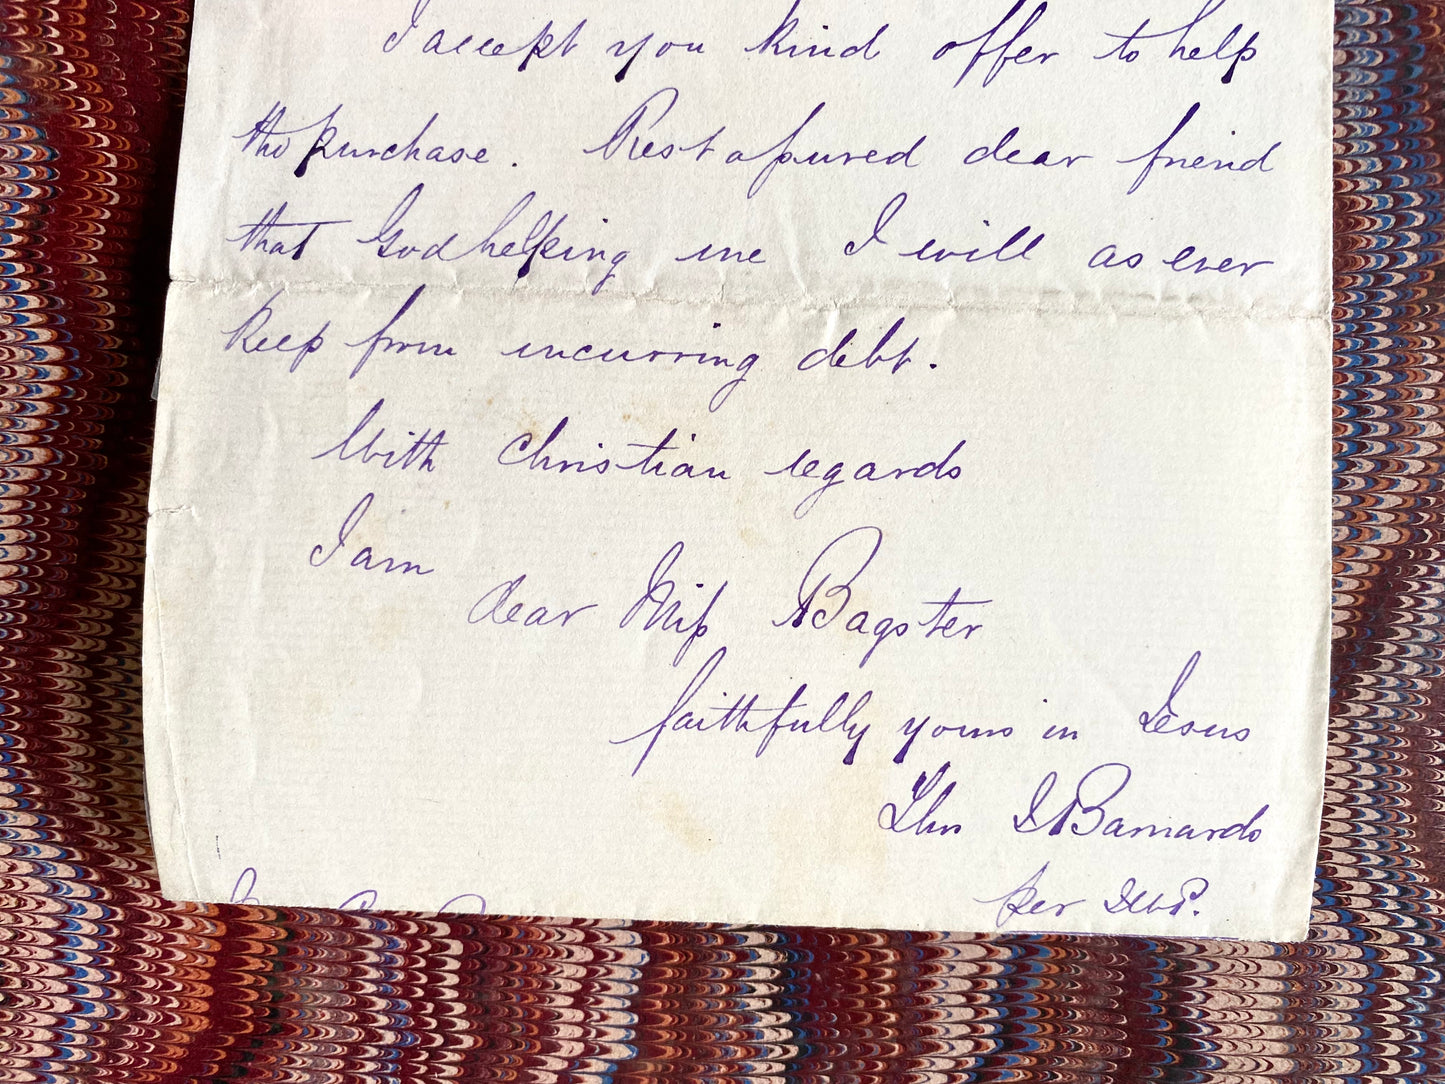 I accept you kind offer to help
the purchase. Rest assured dear friend
that God helping me I will as ever
keep from incurring debt.
With Christian regards
I am
dear Miss Bagster
faithfully yours in Jesus
Thos J Barnardo
per